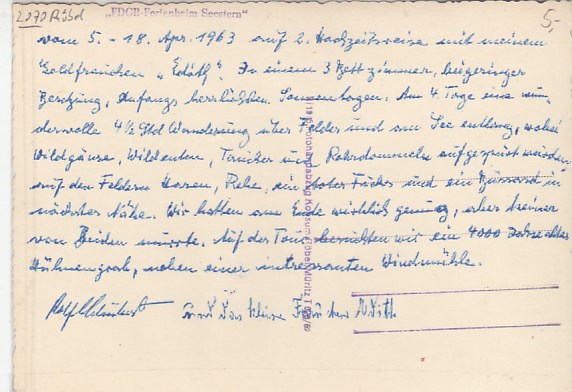 2070 Röbel
"FDGB-Ferienheim Seestern"
5,-
vom 5. - 18. Apr. 1963 auf 2. Hochzeitsreise mit meinem
Goldfrauchen „Edith". In einem 3 Bettzimmer,
Heizung, Anfangs herrlichsten Sonnentagen. Am 4. Tage eine wun-
dervolle 4½ Std Wanderung über Felder und am See entlang, wobei
Wildgänse, Wildenten, Taucher und Rohrdommeln aufgespürt wurden,
auf den Feldern Hasen, Rehe, ein roter Fuchs und ein Bussard in
nächster Nähe. Wir hatten am Ende wirklich genug, aber keiner
von Beiden murrte. Auf der Tour wir ein 4000 Jahre altes
Hühnengrab, neben einer interessanten Windmühle.
und das kleine Frauchen Edith